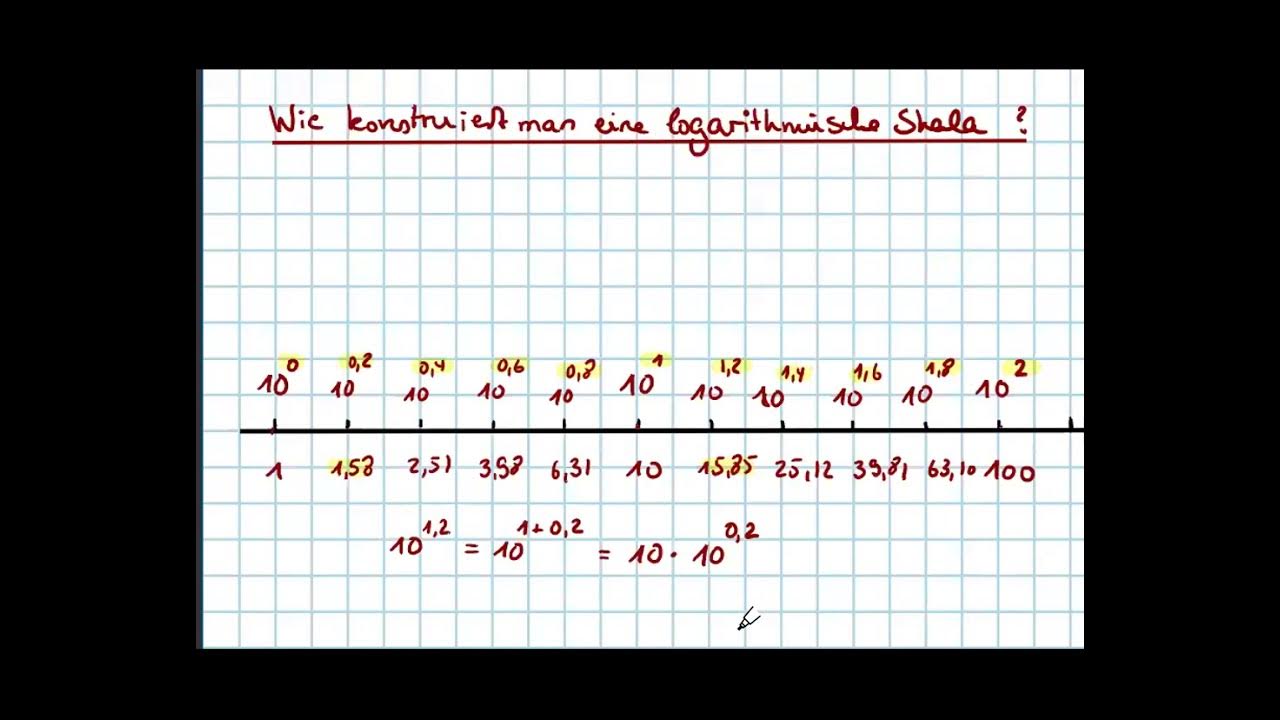 Wie konstruiert man eine logarithmische Skala ?
10^0 10^0,2 10^0,4 10^0,6 10^0,8 10^1 10^1,2 10^1,4 10^1,6 10^1,8 10^2
1 1,58 2,51 3,98 6,31 10 15,85 25,12 39,81 63,10 100
10^1,2 = 10^1+0,2 = 10 · 10^0,2